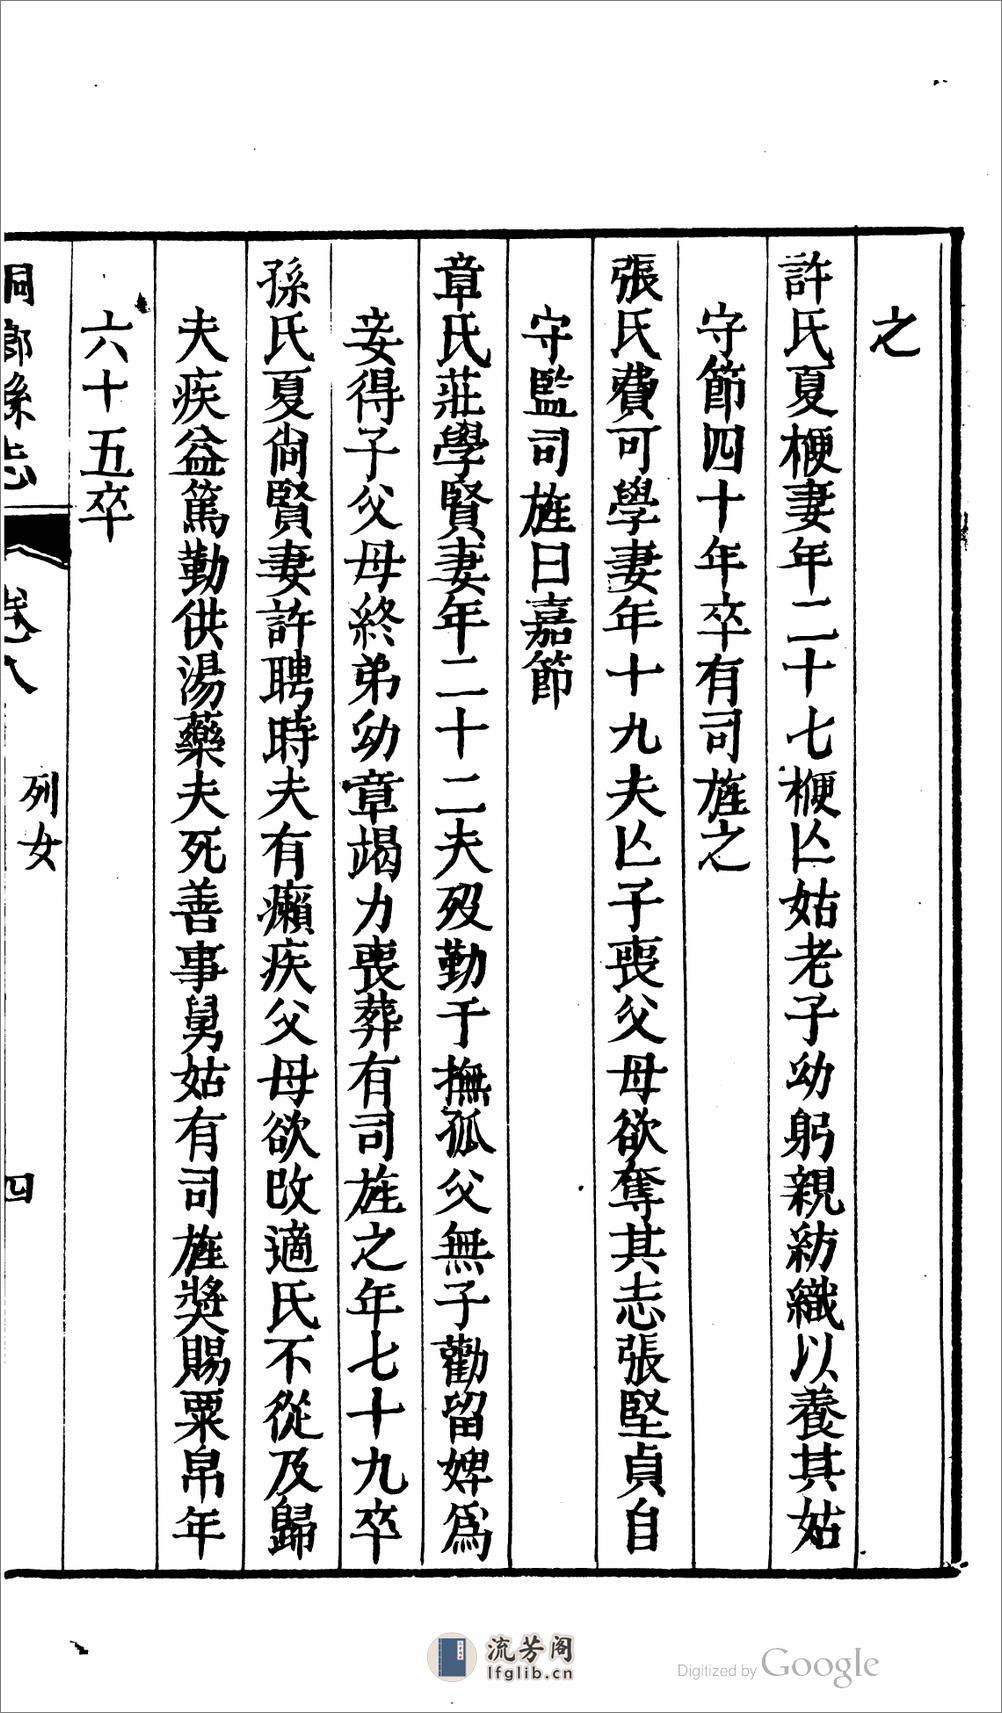 之
許氏夏梗妻年二十七梗亾姑老子幼躬親紡織以養其姑
守節四十年卒有司旌之
張氏費可學妻年十九夫亾子喪父母欲奪其志張堅貞自
守監司旌曰嘉節
章氏莊學賢妻年二十二夫歿勤于撫孤父無子勸留婢爲
妾得子父母終弟幼章竭力喪葬有司旌之年七十九卒
孫氏夏尙賢妻許聘時夫有癩疾父母欲改適氏不從及歸
夫疾益篤勤供湯藥夫死善事舅姑有司旌獎賜粟帛年
六十五卒
桐鄉縣志 卷八 列女 四
流芳阁
lfglib.cn
Digitized by Google